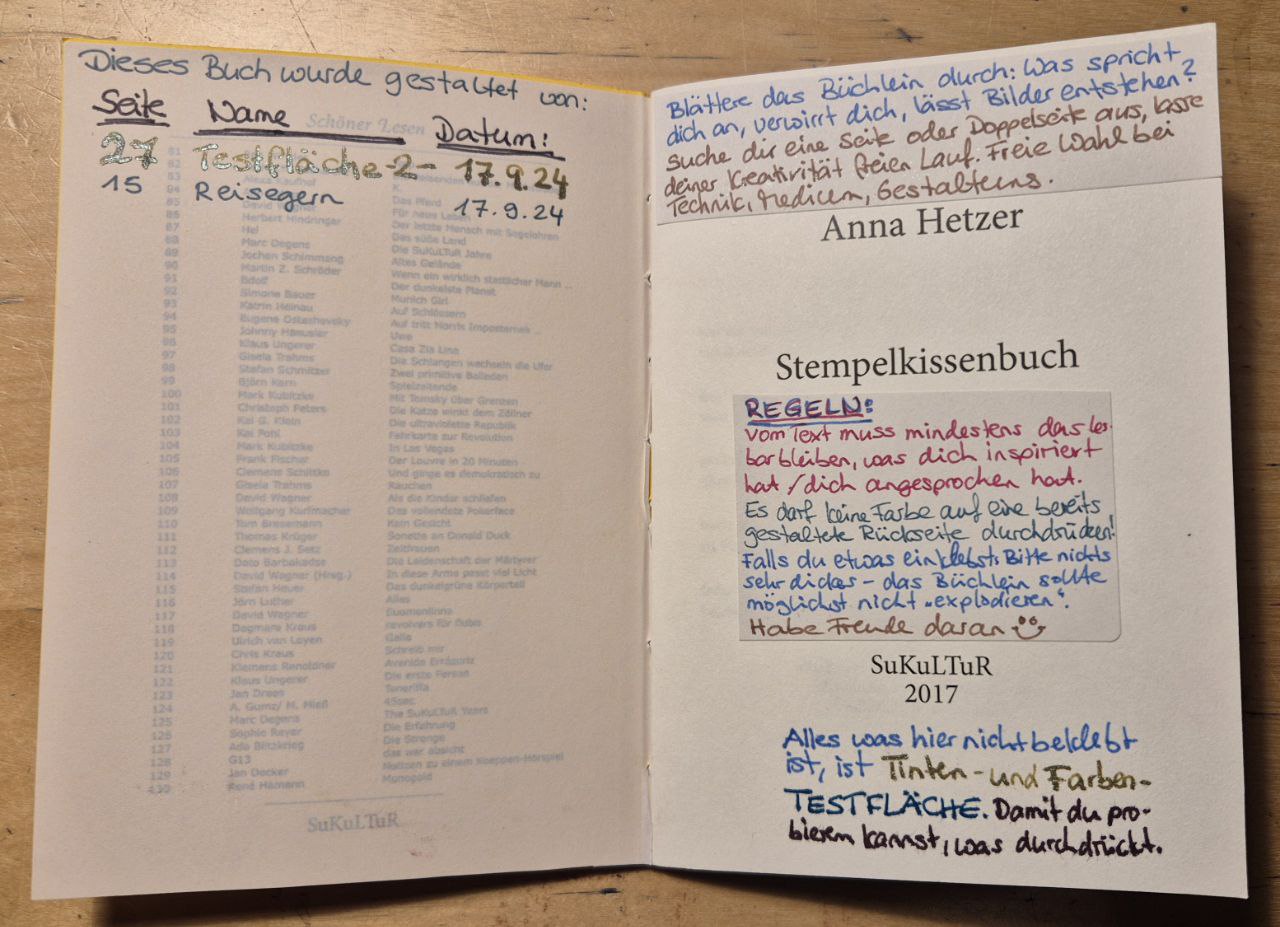 Dieses Buch wurde gestaltet von:
Seite Name Datum:
27 Testfläche-2- 17.9.24
15 Reisegern 17.9.24
Schöner Lesen
86 Herbert Hindringer Für neue Leben
87 Hel Der letzte Mensch mit Segelohren
88 Marc Degens Das süße Land
89 Jochen Schimmang Die SuKuLTuR Jahre
90 Martin Z. Schröder Altes Gelände
91 Bdolf Wenn ein wirklich stattlicher Mann ...
92 Simone Bauer Der dunkelste Planet
93 Katrin Heinau Munich Girl
94 Eugene Ostashevsky Auf Schlössern
95 Johnny Haeusler Auf tritt Norris Imposternak ...
96 Klaus Ungerer Uwe
97 Gisela Trahms Casa Zia Lina
98 Stefan Schmitzer Die Schlangen wechseln die Ufer
99 Björn Kern Zwei primitive Balladen
100 Mark Kubitzke Spielzeitende
101 Christoph Peters Mit Temsky über Grenzen
102 Kai G. Klein Die Katze winkt dem Zöllner
103 Kai Pohl Die ultraviolette Republik
104 Mark Kubitzke Fahrkarte zur Revolution
105 Frank Fischer In Las Vegas
106 Clemens Schittko Der Louvre in 20 Minuten
107 Gisela Trahms Und ginge es demokratisch zu
108 David Wagner Rauchen
109 Wolfgang Kurlmacher Als die Kinder schliefen
110 Tom Bresemann Das vollendete Pokerface
111 Thomas Krüger Kein Gesicht
112 Clemens J. Setz Sonette an Donald Duck
113 Dato Barbakadse Zeitfrauen
114 David Wagner (Hrsg.) Die Leidenschaft der Märtyrer
115 Stefan Heuer In diese Arme passt viel Licht
116 Jörn Luther Das dunkelgrüne Körperteil
117 David Wagner Alles
118 Dagmara Kraus
119 Ulrich van Loyen revolvers für flubis
120 Chris Kraus Galle
121 Klemens Renoldner Schreib mir
122 Klaus Ungerer Avenida Errázuriz
123 Jan Drees Die erste Person
124 A. Gumz/ M. Mieß Teneriffa
125 Marc Degens 45sec.
126 Sophie Reyer The SuKuLTuR Years
127 Ada Blitzkrieg Die Erfahrung
128 G13 Die Strenge
129 Jan Decker das war absicht
130 René Hamann Notizen zu einem Koeppen-Hörspiel
Monogold
SuKuLTuR
Blättere das Büchlein durch: Was spricht
dich an, verwirrt dich, lässt Bilder entstehen?
Suche dir eine Seite oder Doppelseite aus, lasse
deiner Kreativität freien Lauf. Freie Wahl bei
Technik, Medium, Gestaltens.
Anna Hetzer
Stempelkissenbuch
REGELN:
Vom Text muss mindestens das les-
bar bleiben, was dich inspiriert
hat / dich angesprochen hat.
Es darf keine Farbe auf eine bereits
gestaltete Rückseite durchdrücken!
Falls du etwas einklebst: Bitte nichts
sehr dickes - das Büchlein sollte
möglichst nicht „explodieren“.
Habe Freude daran
SuKuLTuR
2017
Alles was hier nicht beklebt
ist, ist Tinten- und Farben-
TESTFLÄCHE. Damit du pro-
bieren kannst, was durchdrückt.